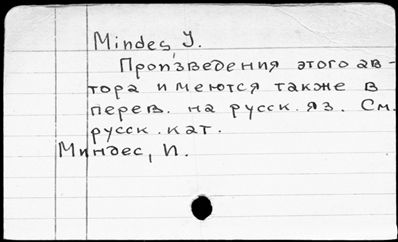 Mindes J.
Произведения этого ав-
тора имеются также в
перев. на русск. яз. См.
русск. кат.
Миндес, И.